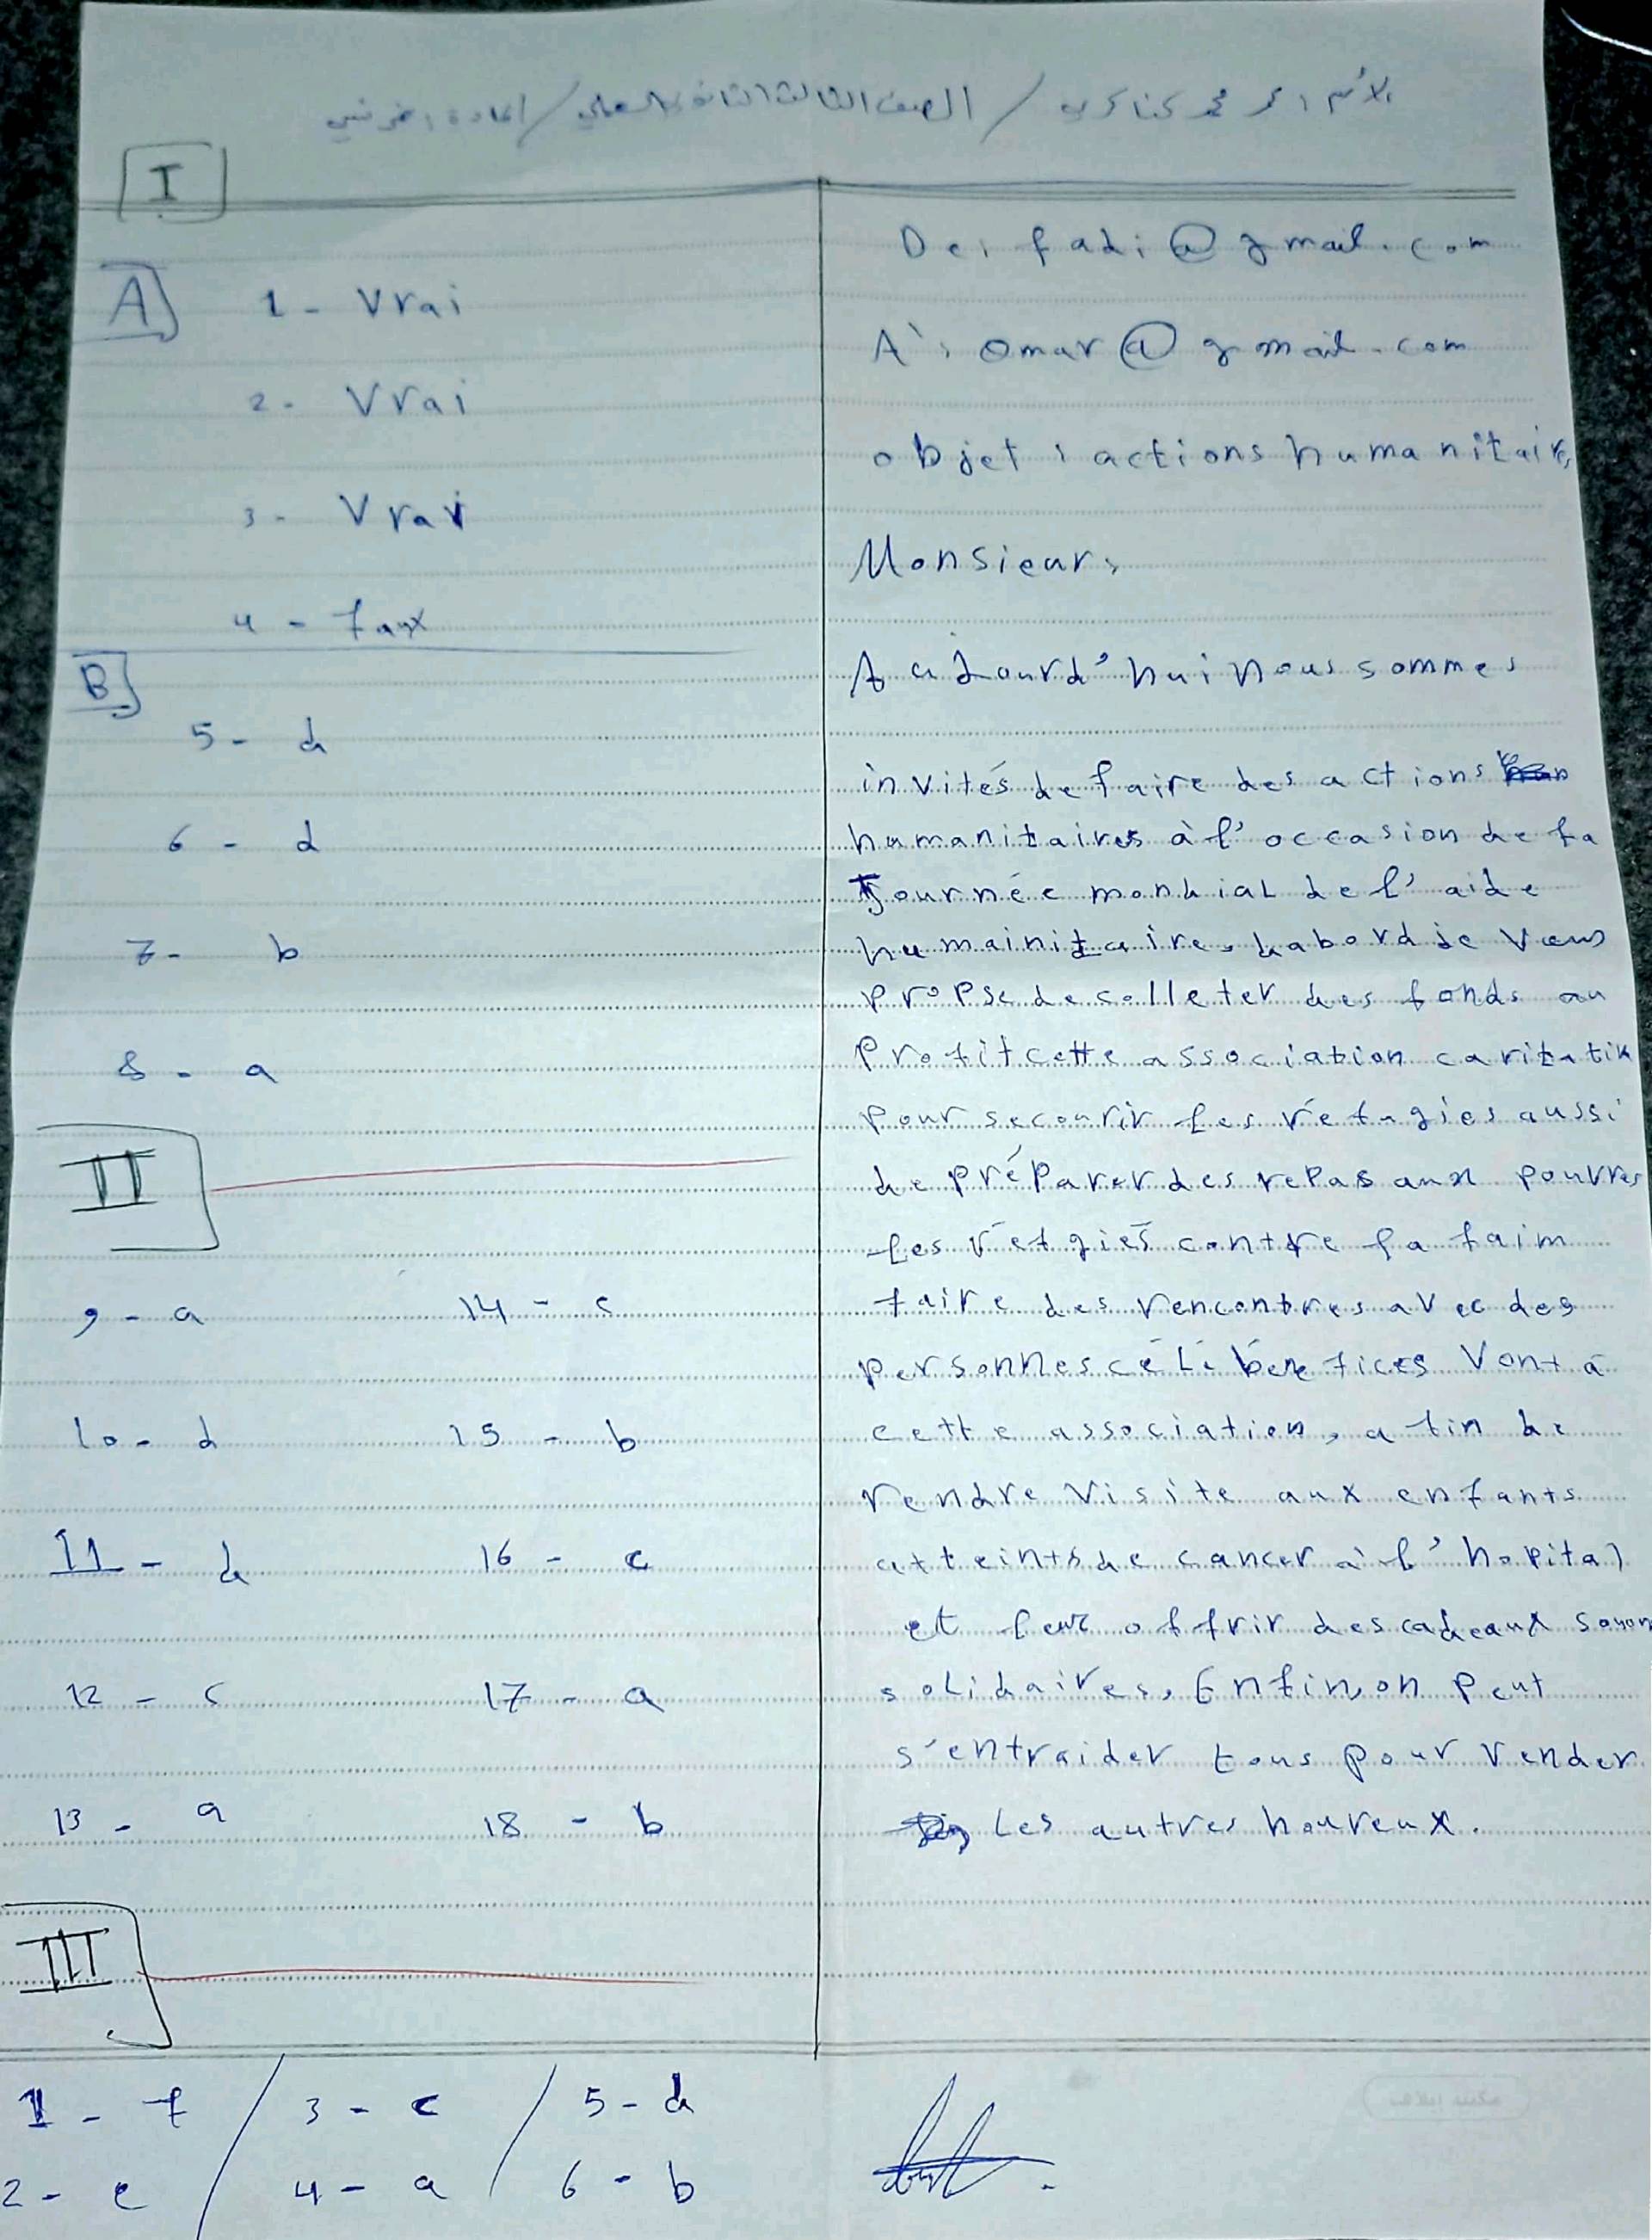 الاسم : عمر محمد كناكري / الصف الثالث الثانوي العلمي / المادة : فرنسي
I
A
1 - Vrai
2 - Vrai
3 - Vrai
4 - faux
B
5 - d
6 - d
7 - b
8 - a
II
9 - a
10 - d
11 - d
12 - c
13 - a
14 - c
15 - b
16 - c
17 - a
18 - b
III
1 - f / 3 - c / 5 - d
2 - e / 4 - a / 6 - b
De: fadi@gmail.com
A': Omar@gmail.com
objet : actions humanitaires
Monsieur,
Aujourd'hui nous sommes
invités de faire des actions
humanitaires à l'occasion de la
Journée mondial de l'aide
humainitaire, dabord je vous
propse de colleter des fonds au
profit cette association caritatik
pour secourir les réfugies aussi
de préparer des repas aux pouvres
les réfgiés contre la faim
faire des rencontres avec des
personnes céLé bénéfices Vont à
cette association, afin de
rendre visite aux enfants
atteints de cancer à l'hopital
et leur offrir des cadeaux soyon
solidaires, Enfin, on peut
s'entraider tous pour render
Les autres houreux.
مكتبة إيلاف